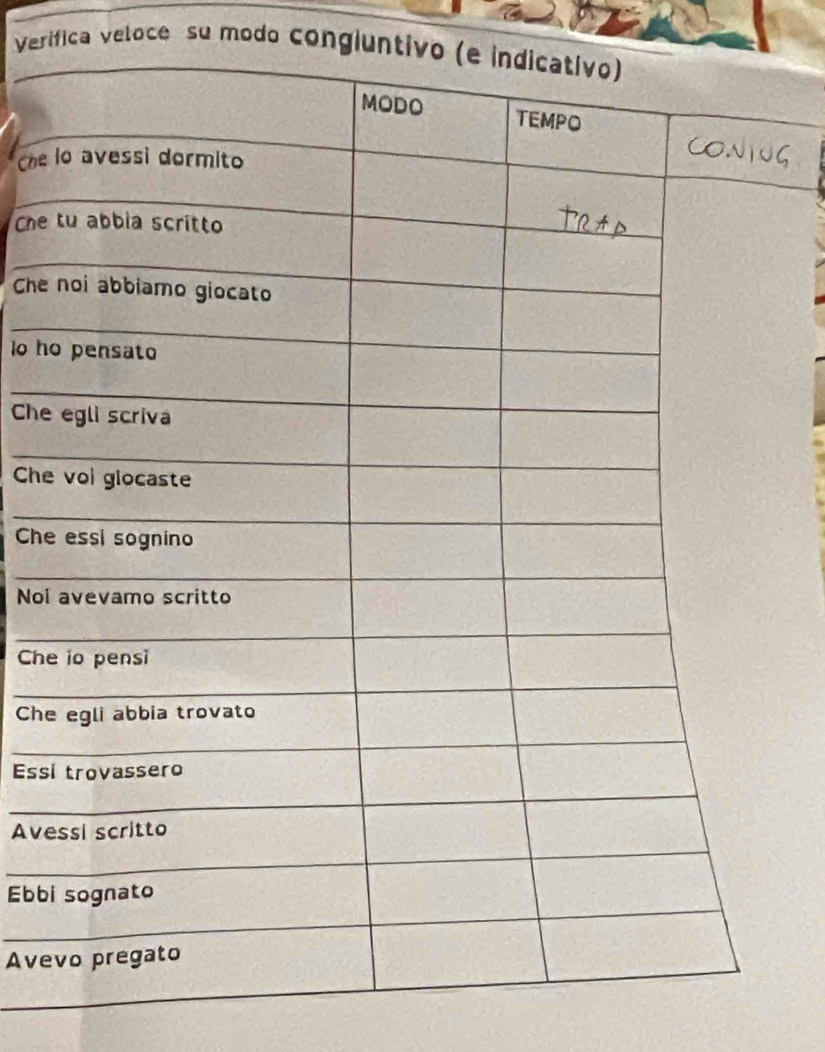 Verifica veloce su modo congiuntivo (e indicativo)
MODO TEMPO CONIUG
Che io avessi dormito
Che tu abbia scritto TRAP
Che noi abbiamo giocato
Io ho pensato
Che egli scriva
Che voi giocaste
Che essi sognino
Noi avevamo scritto
Che io pensi
Che egli abbia trovato
Essi trovassero
Avessi scritto
Ebbi sognato
Avevo pregato